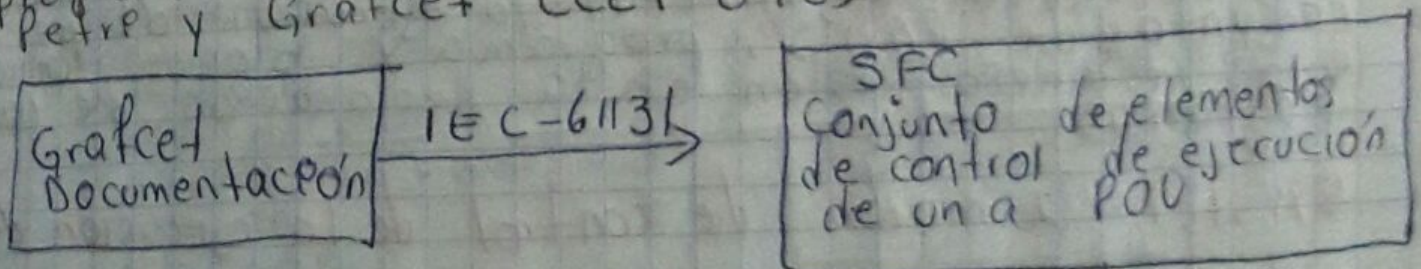 Petri y Grafcet
Grafcet
Documentación
IEC-61131
SFC
Conjunto de elementos
de control de ejecución
de una POU